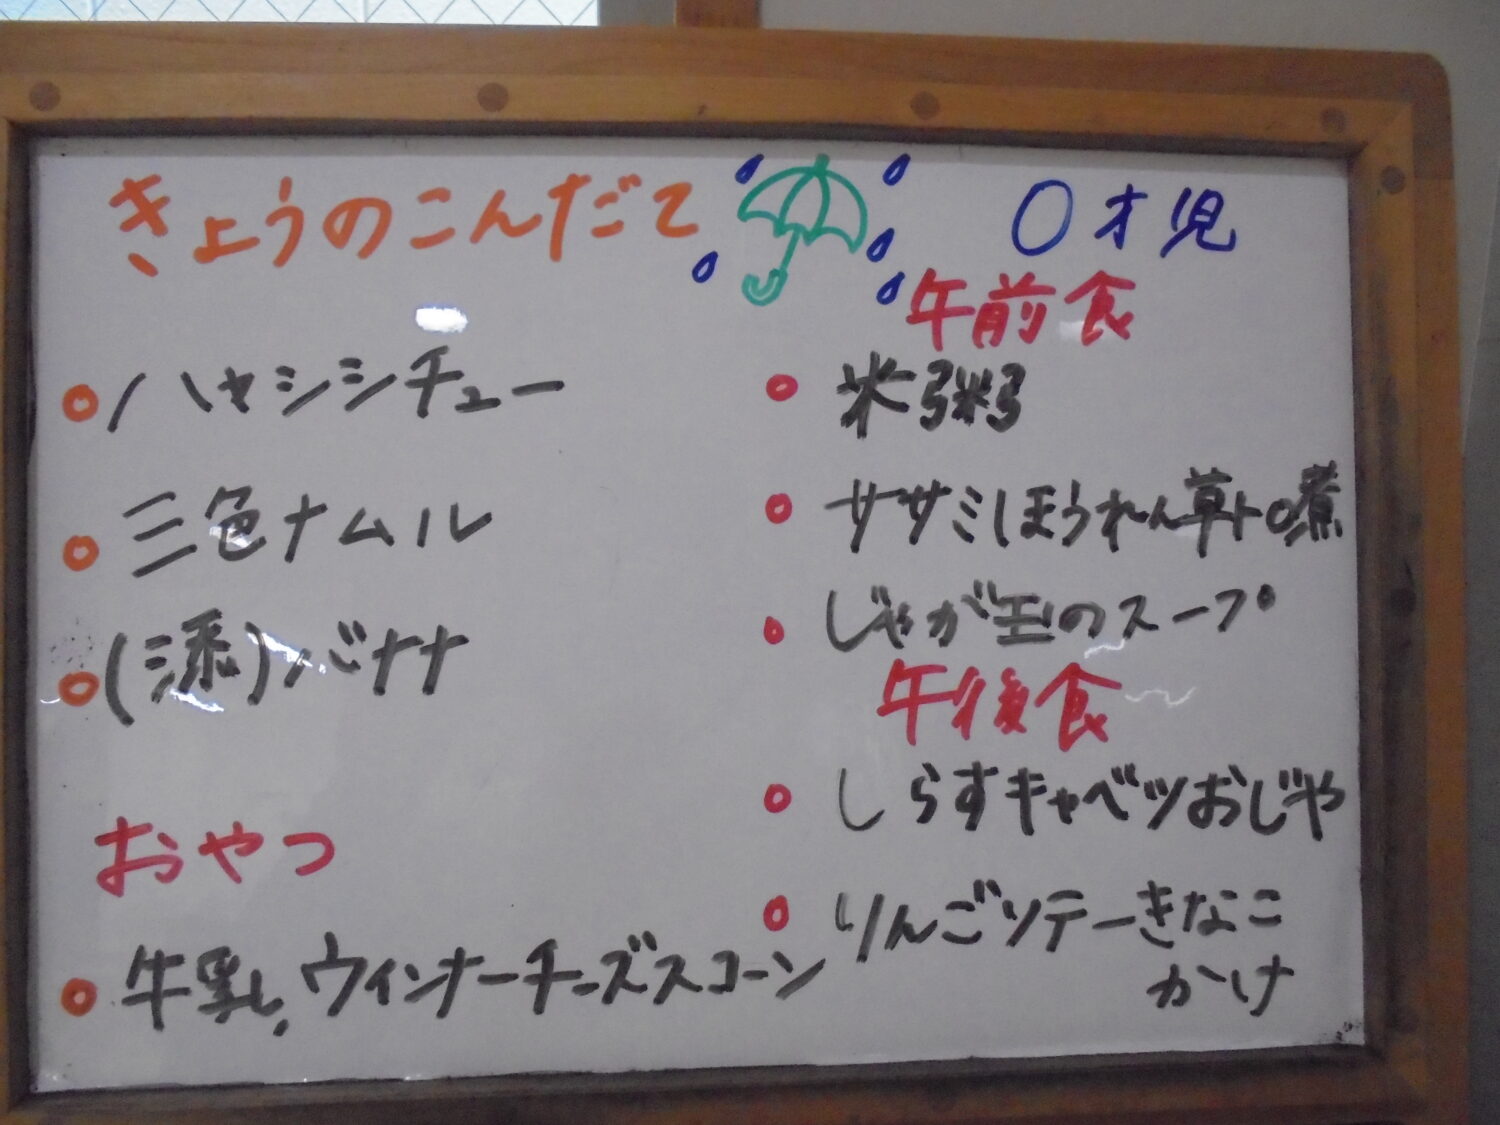 きょうのこんだて
ハヤシシチュー
三色ナムル
(添)バナナ
おやつ
牛乳、ウィンナーチーズスコーン
0才児
午前食
米粥
ササミほうれん草トロ煮
じゃが玉のスープ
午後食
しらすキャベツおじや
りんごソテーきなこ
かけ